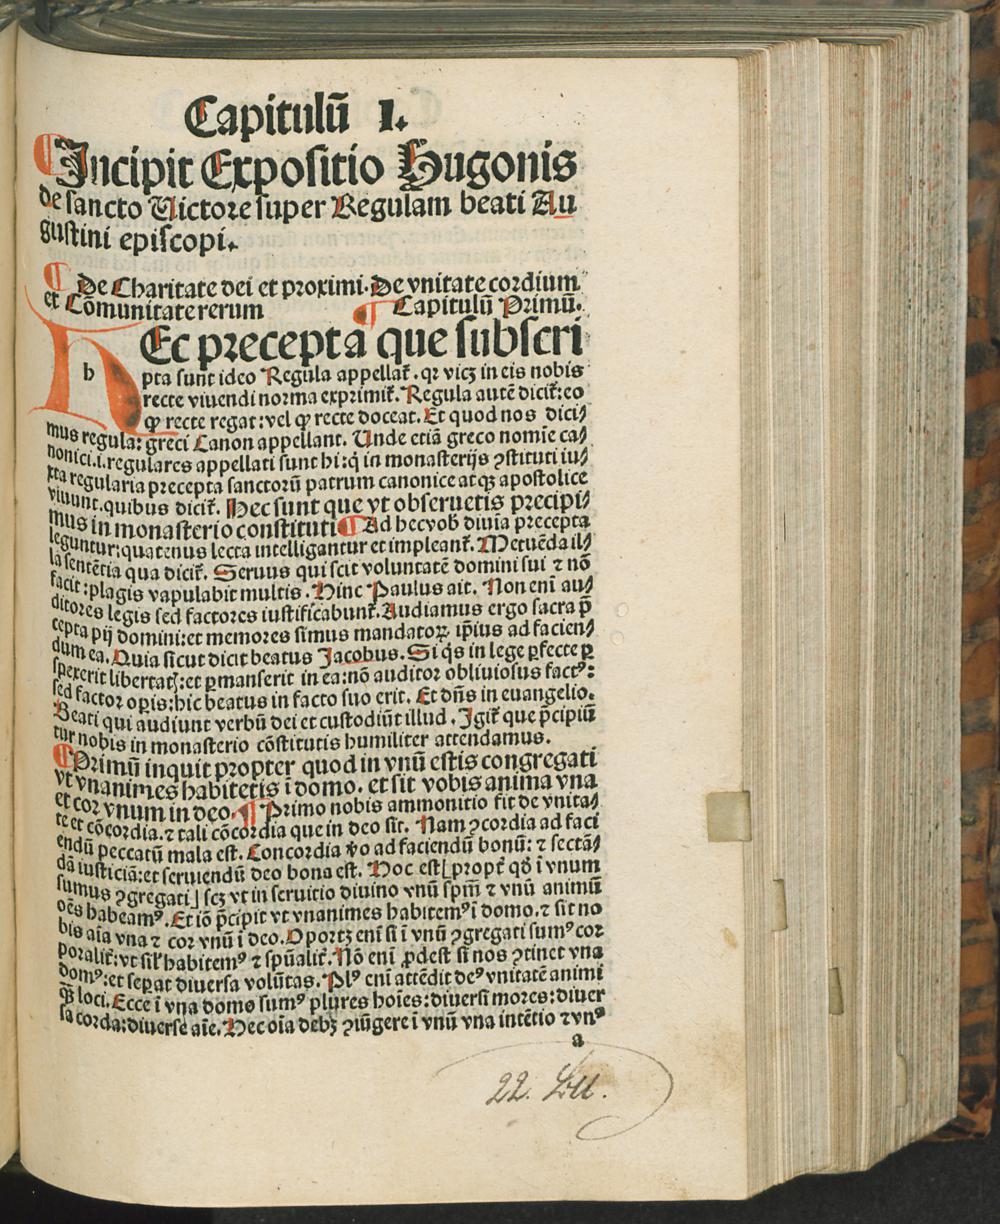 Capitulū 1.
¶ Incipit Expositio Hugonis
de sancto Uictore super Regulam beati Au
gustini episcopi.
¶ De Charitate dei et proximi. De vnitate cordium
et Cōmunitate rerum ¶ Capitulū Primū.
h Ec precepta que subscri
pta sunt ideo Regula appellat̄. qꝛ vicꝫ in eis nobis
recte viuendi norma exprimit̄. Regula autē dicit̄: eo
ꝙ recte regat: vel ꝙ recte doceat. Et quod nos dici⸗
mus regula: greci Canon appellant. Unde etiā greco nomīe ca⸗
nonici .i. regulares appellati sunt hi: q̇ in monasterijs ꝯstituti iu⸗
xta regularia precepta sanctorū patrum canonice atqꝫ apostolice
viuunt. quibus dicit̄. Hec sunt que vt obseruetis precipi⸗
mus in monasterio constituti ¶ Ad hec vob̄ diuīa precepta
leguntur: quatenus lecta intelligantur et impleant̄. Metuēda il⸗
la sentētia qua dicit̄. Seruus qui scit voluntatē domini sui ⁊ nō
facit: plagis vapulabit multis. Hinc Paulus ait. Non enī au⸗
ditores legis sed factores iustificabunt̄. Audiamus ergo sacra p̄
cepta pij domini: et memores simus mandatoꝝ ip̄ius ad facien⸗
dum ea. Quia sicut dicit beatus Jacobus. Si q̇s in lege ꝑfecte ꝑ
spexerit libertatꝭ: et ꝑmanserit in ea: nō auditor obliuiosus factꝰ:
sed factor oꝑis: hic beatus in facto suo erit. Et dn̄s in euangelio.
Beati qui audiunt verbū dei et custodiūt illud. Igit̄ que p̄cipiū
tur nobis in monasterio cōstitutis humiliter attendamus.
¶ Primū inquit propter quod in vnū estis congregati
vt vnanimes habitetis ī domo. et sit vobis anima vna
et cor vnum in deo. ¶ Primo nobis ammonitio fit de vnita⸗
te et cōcordia. ⁊ tali cōcordia que in deo sit. Nam ꝯcordia ad faci
endū peccatū mala est. Concordia v̊o ad faciendū bonū: ⁊ sectā⸗
dā iusticiā: et seruiendū deo bona est. Hoc est [propt̄ qd̄ ī vnum
sumus ꝯgregati] scꝫ vt in seruitio diuino vnū spm̄ ⁊ vnū animū
oēs habeamꝰ. Et iō p̄cipit vt vnanimes habitemꝰ ī domo. ⁊ sit no
bis aīa vna ⁊ cor vnū ī deo. Oportꝫ enī si ī vnū ꝯgregati sumꝰ cor
poralit̄: vt sil̄ habitemꝰ ⁊ spūalit̄. Nō enī ꝓdest si nos ꝯtinet vna
domꝰ: et seꝑat diuersa volūtas. Plꝰ enī attēdit deꝰ vnitatē animi
ꝙ̄ loci. Ecce ī vna domo sumꝰ plures hoīes: diuersi mores: diuer
sa corda: diuerse aīe. Hec oīa debꝫ ꝯiūgere ī vnū vna intētio ⁊ vnꝰ
a
22.